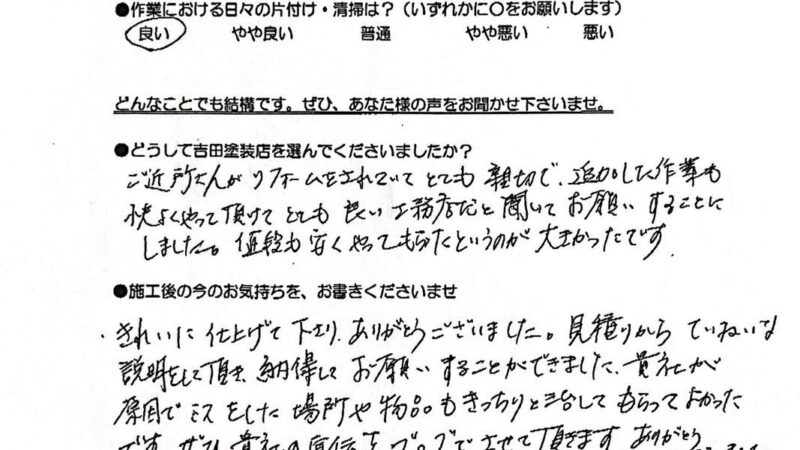 ●作業における日々の片付け・清掃は?(いずれかに○をお願いします)
良い やや良い 普通 やや悪い 悪い
どんなことでも結構です。ぜひ、あなた様の声をお聞かせ下さいませ。
●どうして吉田塗装店を選んでくださいましたか?
ご近所さんがリフォームをされていてとても親切で、追加した作業も
快よくやって頂けてとても良い工務店だと聞いてお願いすることに
しました。値段も安くやってもらえたというのが大きかったです
●施工後の今のお気持ちを、お書きくださいませ
・きれいに仕上げて下さり、ありがとうございました。見積りからていねいな
説明をして頂き、納得してお願いすることができました、貴社が
原因でミスをした場所や物品もきっちりと対合してもらってよかった
です。ぜひ貴社の宣伝をブログでさせて頂きます ありがとう